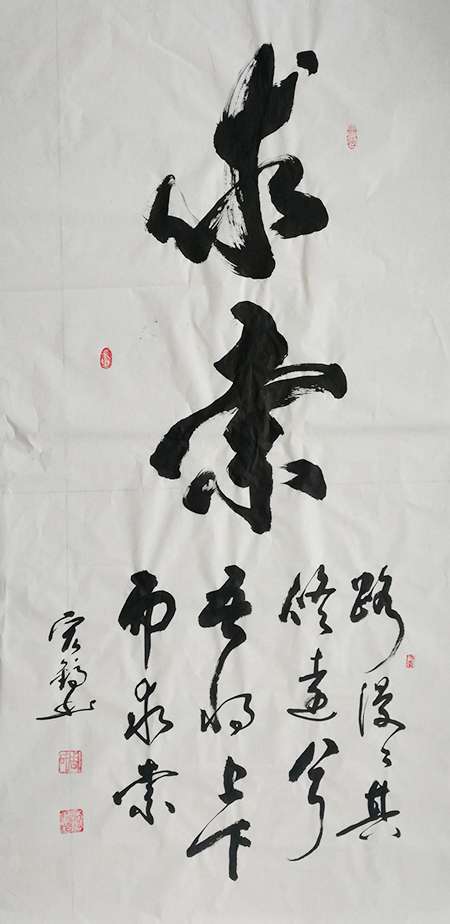 求索
路漫々其
修远兮
吾将上下
而求索